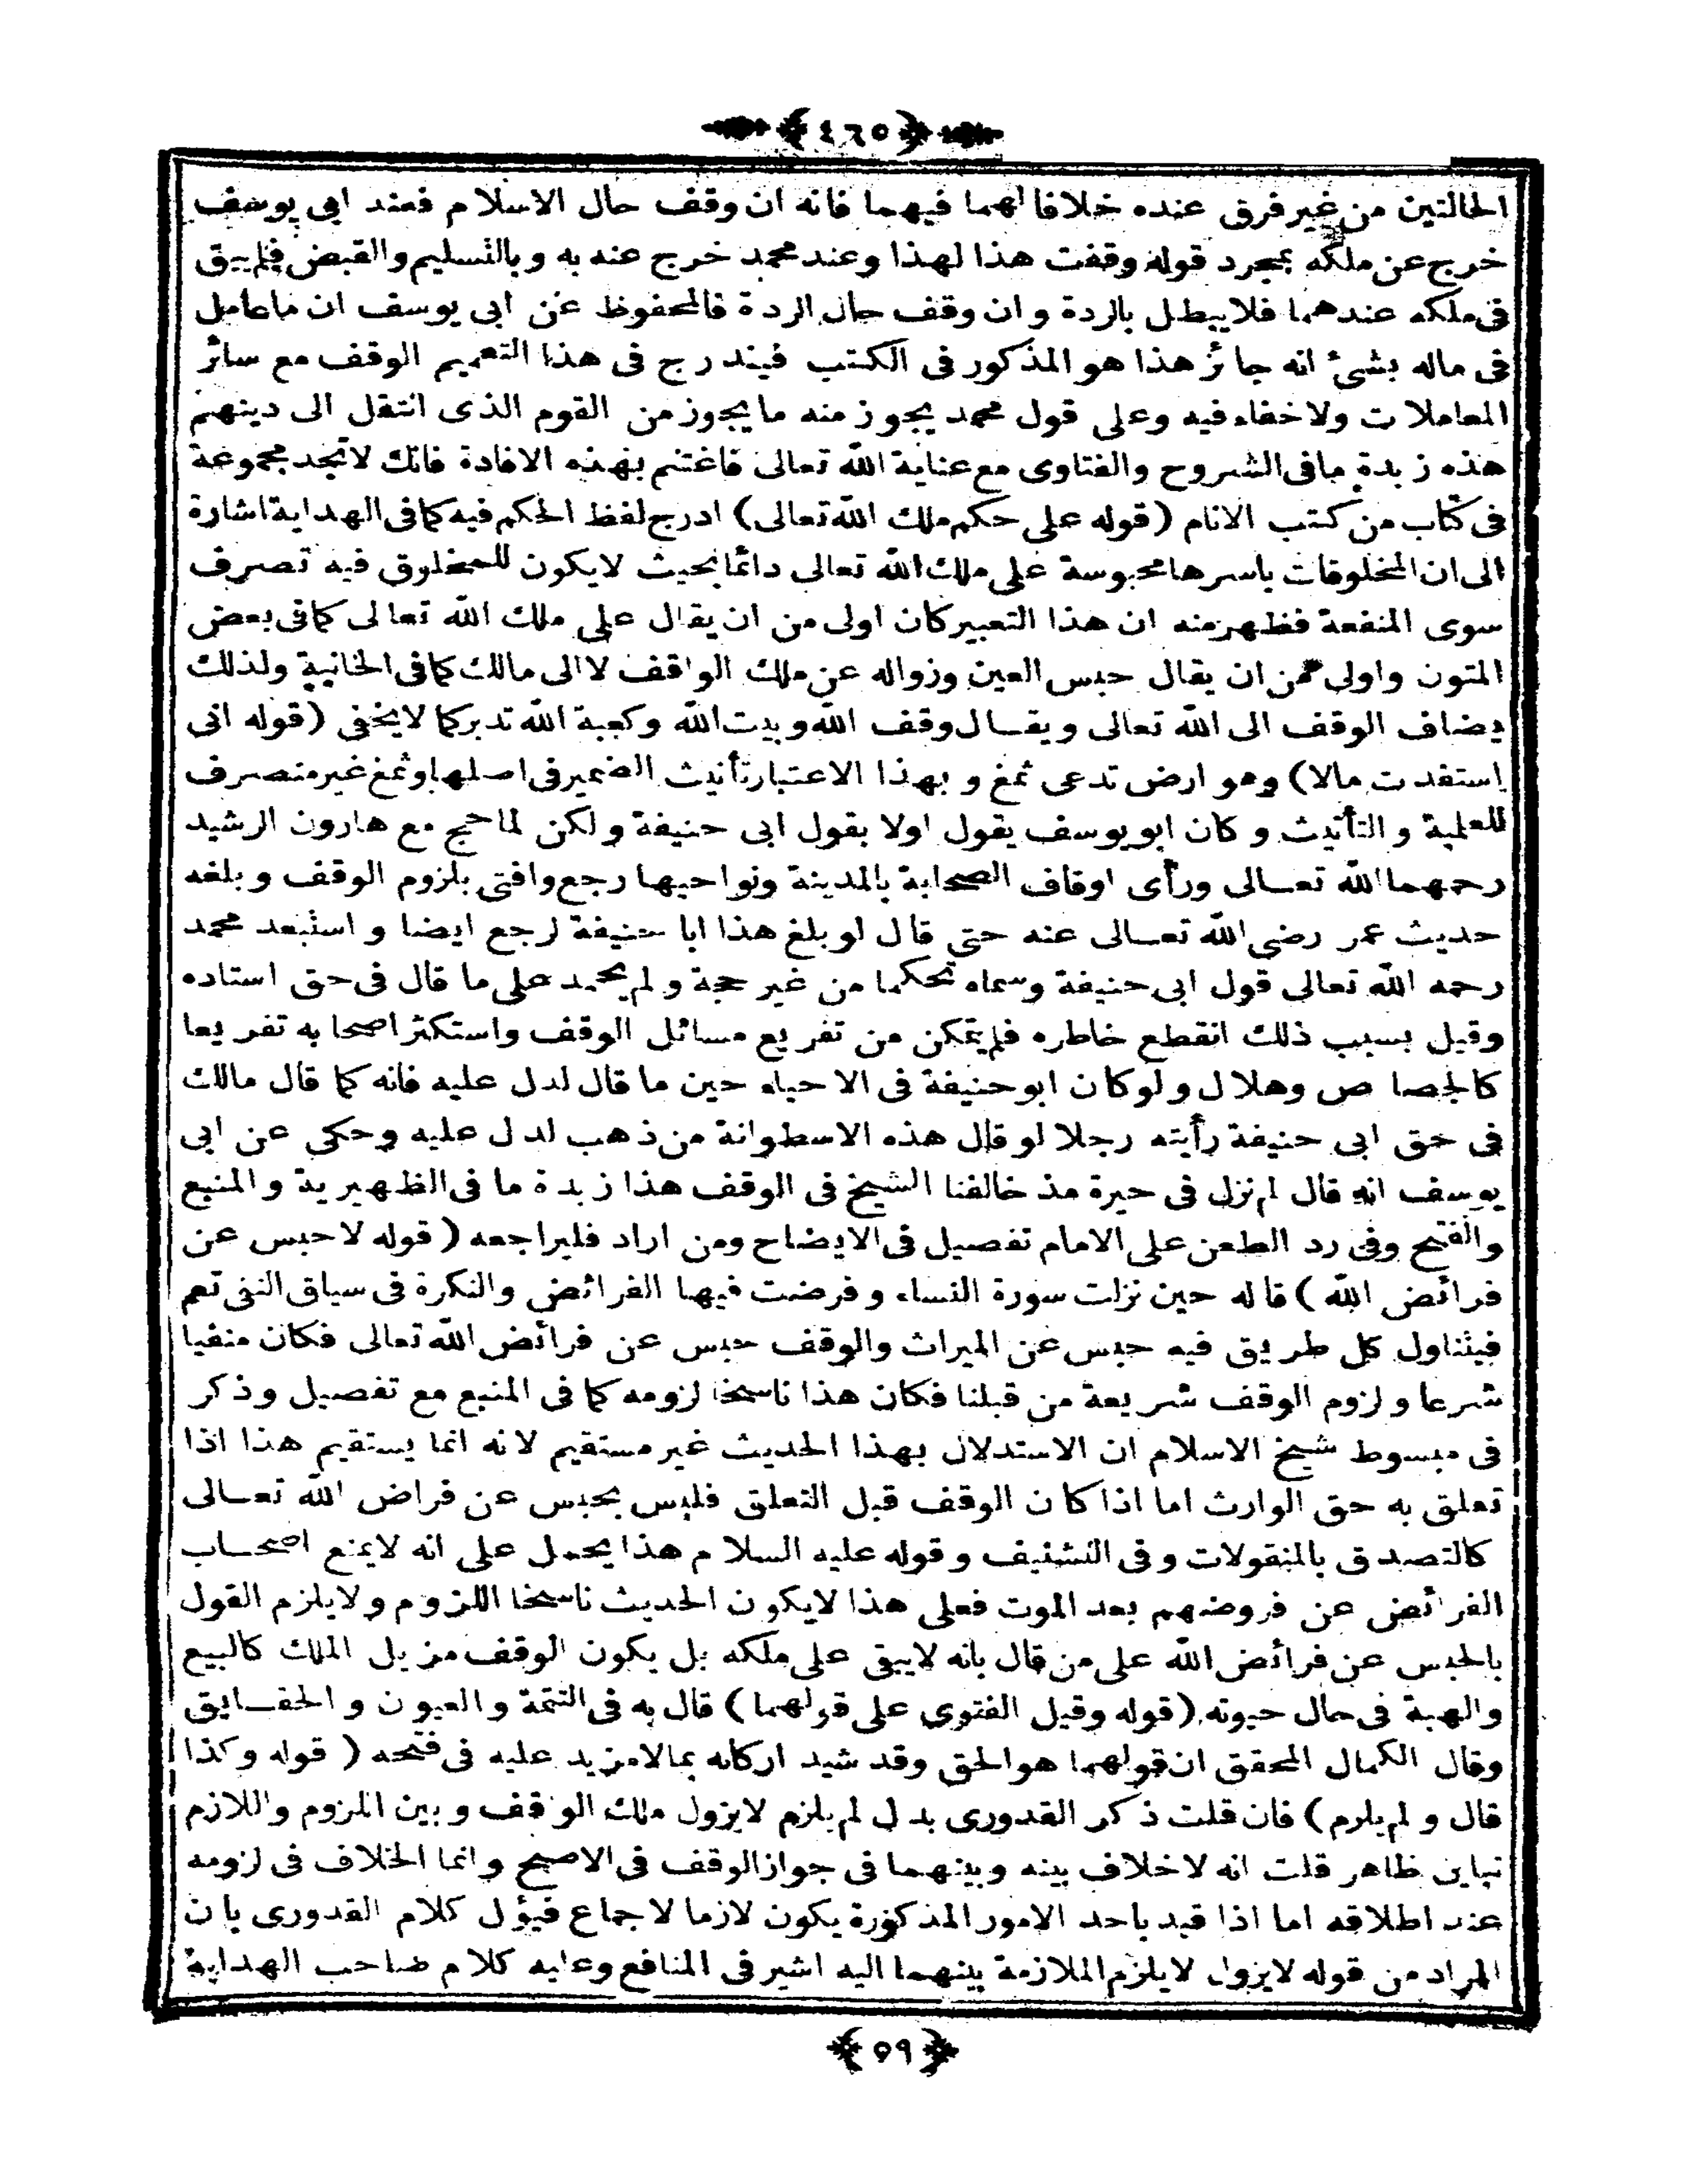 ﴿٤٦٥﴾
الحالتين من غير فرق عنده خلافا لهما فيهما فانه ان وقف حال الاسلام فعند ابى يوسف
خرج عن ملكه بمجرد قوله وقفت هذا لهذا وعند محمد خرج عنه به وبالتسليم والقبض فلم يبق
فى ملكه عندهما فلا يبطل بالردة وان وقف حال الردة فالمحفوظ عن ابى يوسف ان ما عامل
فى ماله بشئ انه جائز هذا هو المذكور فى الكتب فيندرج فى هذا التعميم الوقف مع سائر
المعاملات ولا خفاء فيه وعلى قول محمد يجوز منه ما يجوز من القوم الذى انتقل الى دينهم
هذه زبدة ما فى الشروح والفتاوى مع عناية الله تعالى فاغتنم بهذه الافادة فانك لا تجد مجموعة
فى كتاب من كتب الانام (قوله على حكم ملك الله تعالى) ادرج لفظ الحكم فيه كما فى الهداية اشارة
الى ان المخلوقات باسرها محبوسة على ملك الله تعالى دائما بحيث لا يكون للمخلوق فيه تصرف
سوى المنفعة فظهر منه ان هذا التعبير كان اولى من ان يقال على ملك الله تعالى كما فى بعض
المتون واولى ممن ان يقال حبس العين وزواله عن ملك الواقف لا الى مالك كما فى الخانية ولذلك
يضاف الوقف الى الله تعالى ويقال وقف الله وبيت الله وكعبة الله تدبر كما لا يخفى (قوله انى
استفدت مالا) وهو ارض تدعى ثمغ وبهذا الاعتبار تأنيث الضمير فى اصلها وثمغ غير منصرف
للعلمية والتأنيث وكان ابو يوسف يقول اولا بقول ابى حنيفة ولكن لما حج مع هارون الرشيد
رحمهما الله تعالى ورأى اوقاف الصحابة بالمدينة ونواحيها رجع وافتى بلزوم الوقف وبلغه
حديث عمر رضى الله تعالى عنه حتى قال لو بلغ هذا ابا حنيفة لرجع ايضا واستبعد محمد
رحمه الله تعالى قول ابى حنيفة وسماه تحكما من غير حجة ولم يحمد على ما قال فى حق استاده
وقيل بسبب ذلك انقطع خاطره فلم يتمكن من تفريع مسائل الوقف واستكثر اصحابه تفريعا
كالخصاص وهلال ولو كان ابو حنيفة فى الاحياء حين ما قال لدل عليه فانه كما قال مالك
فى حق ابى حنيفة رأيته رجلا لو قال هذه الاسطوانة من ذهب لدل عليه وحكى عن ابى
يوسف انه قال لم نزل فى حيرة مذ خالفنا الشيخ فى الوقف هذا زبدة ما فى الظهيرية والمنبع
والفتح وفى رد الطعن على الامام تفصيل فى الايضاح ومن اراد فليراجعه (قوله لا حبس عن
فرائض الله) قاله حين نزلت سورة النساء وفرضت فيها الفرائض والنكرة فى سياق النفى تعم
فيتناول كل طريق فيه حبس عن الميراث والوقف حبس عن فرائض الله تعالى فكان منفيا
شرعا ولزوم الوقف شريعة من قبلنا فكان هذا ناسخا لزومه كما فى المنبع مع تفصيل وذكر
فى مبسوط شيخ الاسلام ان الاستدلال بهذا الحديث غير مستقيم لانه انما يستقيم هذا اذا
تعلق به حق الوارث اما اذا كان الوقف قبل التعلق فليس بحبس عن فراض الله تعالى
كالتصدق بالمنقولات وفى التشنيف وقوله عليه السلام هذا يحمل على انه لا يمنع اصحاب
الفرائض عن فروضهم بعد الموت فعلى هذا لا يكون الحديث ناسخا اللزوم ولا يلزم القول
بالحبس عن فرائض الله على من قال بانه لا يبقى على ملكه بل يكون الوقف مزيل الملك كالبيع
والهبة فى حال حيوته (قوله وقيل الفتوى على قولهما) قال به فى التتمة والعيون والحقايق
وقال الكمال المحقق ان قولهما هو الحق وقد شيد اركانه بما لا مزيد عليه فى فتحه (قوله وكذا
قال ولم يلزم) فان قلت ذكر القدورى بدل لم يلزم لا يزول ملك الوقف وبين الملزوم واللازم
تباين ظاهر قلت انه لا خلاف بينه وبينهما فى جواز الوقف فى الاصح وانما الخلاف فى لزومه
عند اطلاقه اما اذا قيد باحد الامور المذكورة يكون لازما لاجماع فيؤل كلام القدورى بان
المراد من قوله لا يزول لا يلزم الملازمة بينهما اليه اشير فى المنافع وعليه كلام صاحب الهداية
﴿٥٩﴾